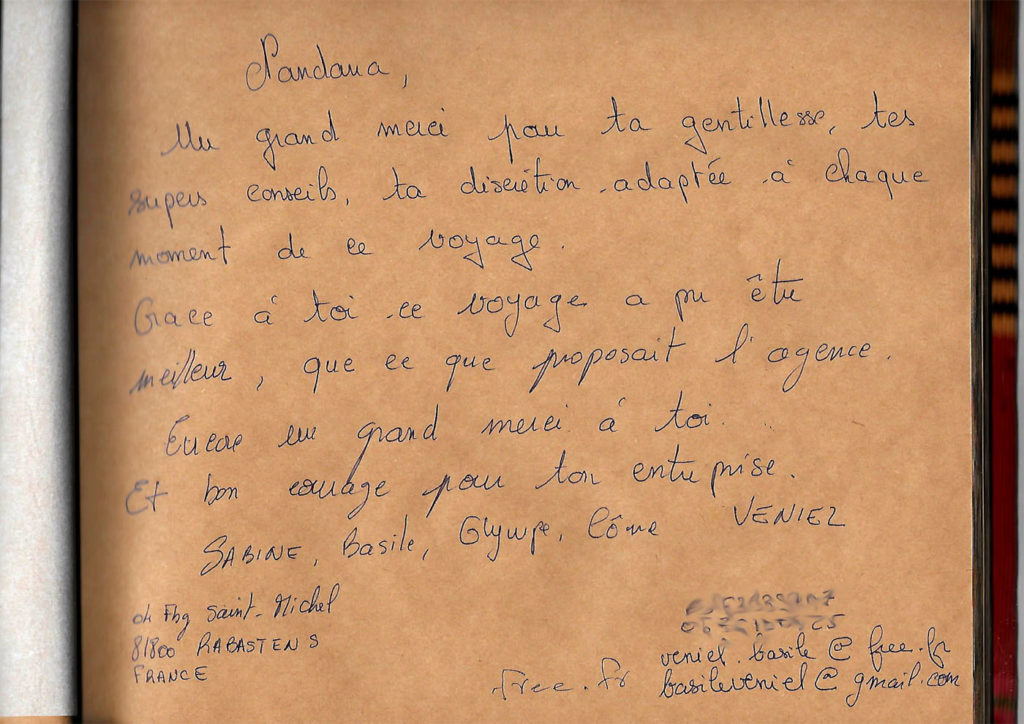 Nandana,
Un grand merci pour ta gentillesse, tes
supers conseils, ta discrétion adaptée à chaque
moment de ce voyage.
Grace à toi ce voyage a pu être
meilleur, que ce que proposait l'agence.
Encore un grand merci à toi.
Et bon courage pour ton entreprise.
SABINE, Basile, Olympe, Côme VENIEL
04 Fbg Saint-Michel
81800 RABASTENS
FRANCE
veniel.basile@free.fr
free.fr basileveniel@gmail.com